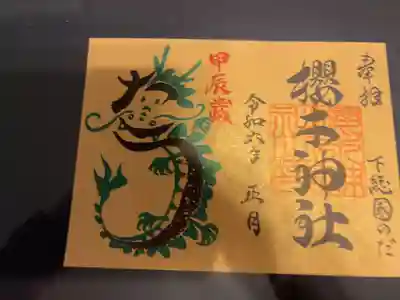 奉拝
下総国のだ
櫻木神社
令和六年 正月
甲辰歳